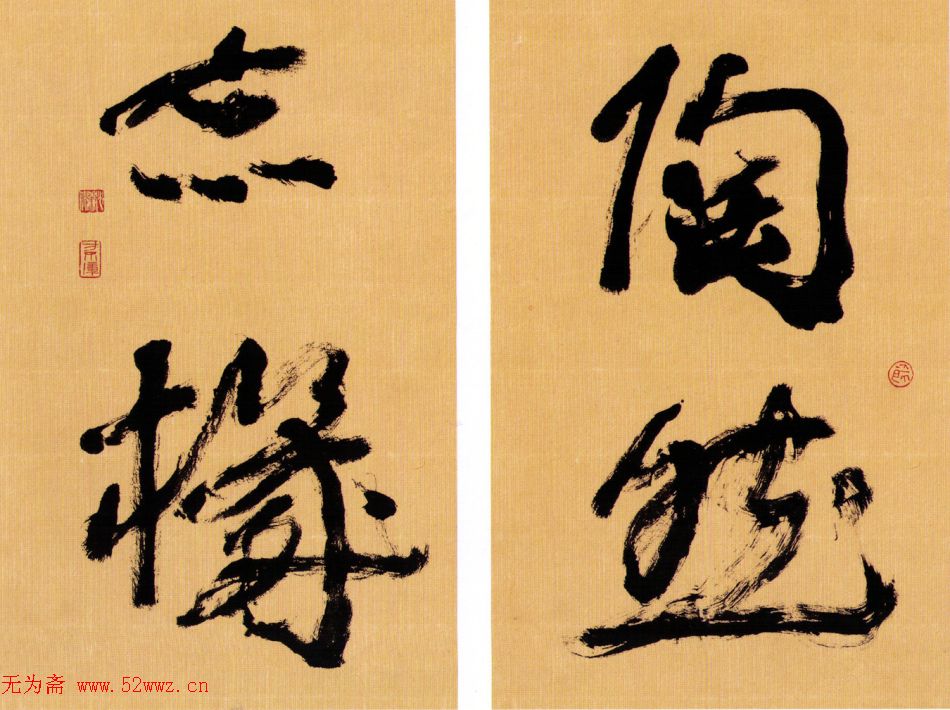 陶然
忘機
无为斋 www.52wwz.cn